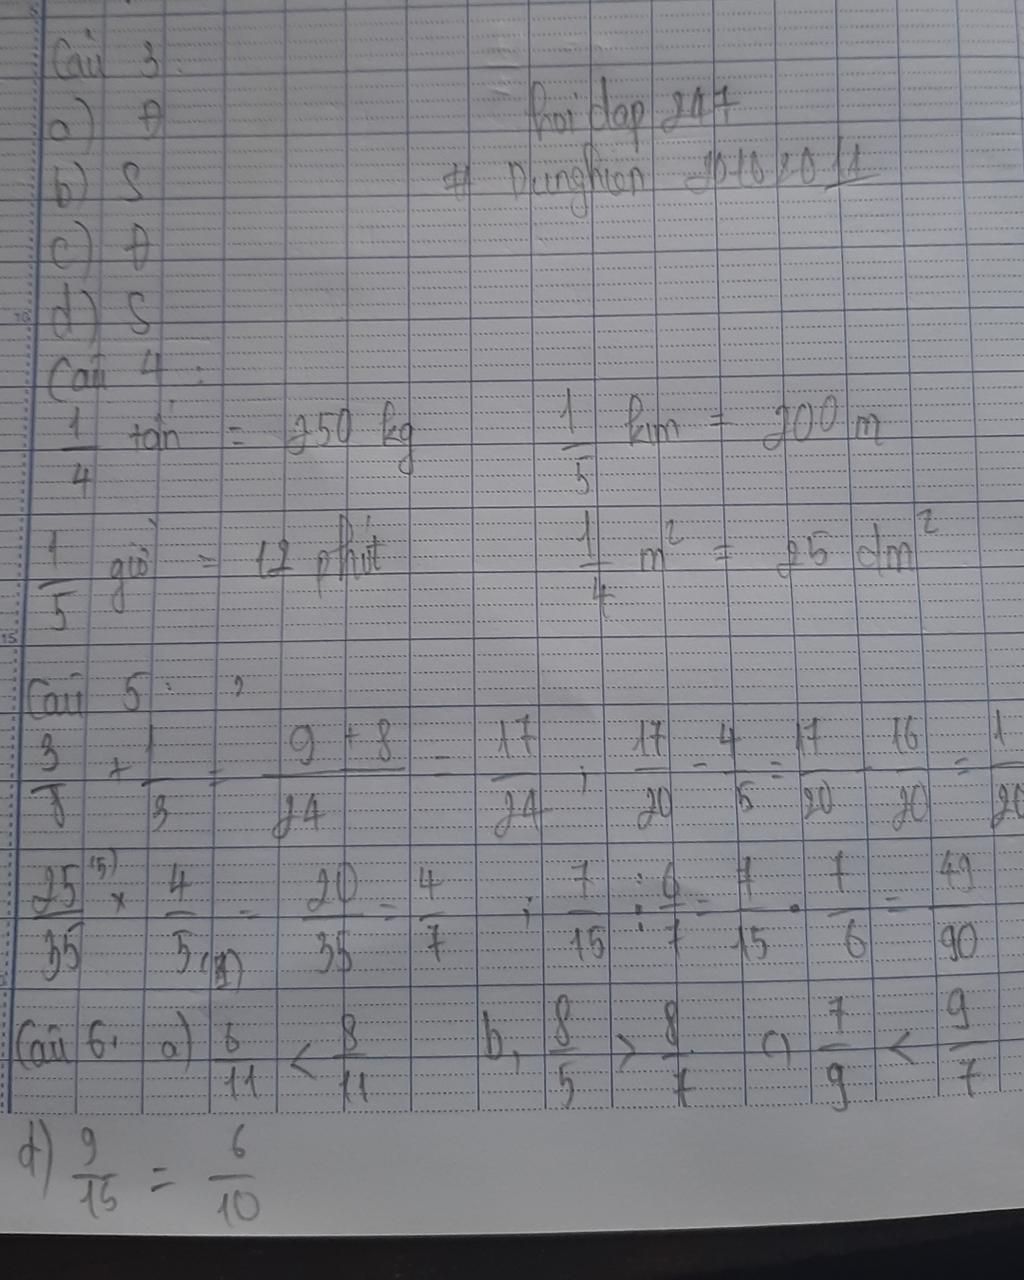 Câu 3:
a) Đ
hoidap 247
b) S
# Dunghien 20102011
c) Đ
d) S
Câu 4:
1/4 tấn = 250 kg 1/5 km = 200 m
1/5 giờ = 12 phút 1/4 m² = 25 dm²
Câu 5:
3/8 + 1/3 = 9 + 8/24 = 17/24 ; 17/20 - 4/5 = 17/20 16/20 = 1/20
25/35 (5) × 4/5 (1) = 20/35 = 4/7 ; 7/15 : 6/7 = 7/15 . 7/6 = 49/90
Câu 6. a) 6/11 < 8/11 b, 8/5 > 8/7 c) 7/9 < 9/7
d) 9/15 = 6/10